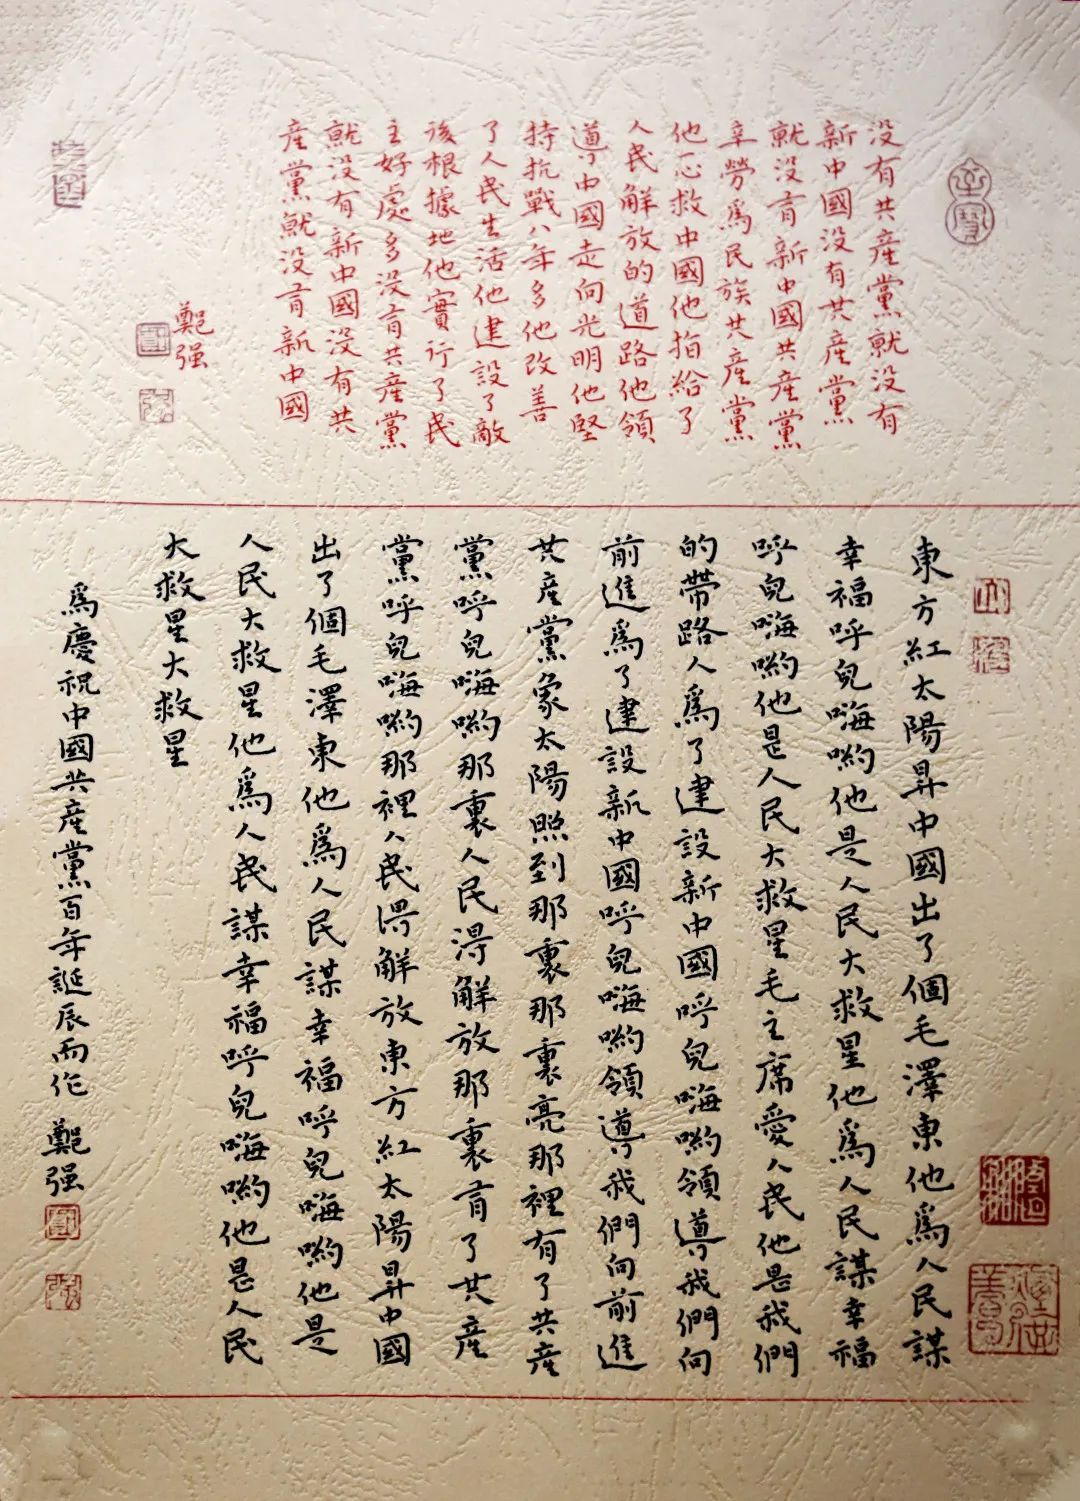 没有共産黨就没有
新中國没有共産黨
就没有新中國共産黨
辛勞爲民族共産黨
他一心救中國他指給了
人民解放的道路他領
導中國走向光明他堅
持抗戰八年多他改善
了人民生活他建設了敵
後根據地他實行了民
主好處多没有共産黨
就没有新中國没有共
産黨就没有新中國
鄭强
東方紅太陽昇中國出了個毛澤東他爲人民謀
幸福呼兒嗨喲他是人民大救星他爲人民謀幸福
呼兒嗨喲他是人民大救星毛主席愛人民他是我們
的帶路人爲了建設新中國呼兒嗨喲領導我們向
前進爲了建設新中國呼兒嗨喲領導我們向前進
共産黨象太陽照到那裏那裏亮那裡有了共産
黨呼兒嗨喲那裏人民得解放那裏有了共産
黨呼兒嗨喲那裡人民得解放東方紅太陽昇中國
出了個毛澤東他爲人民謀幸福呼兒嗨喲他是
人民大救星他爲人民謀幸福呼兒嗨喲他是人民
大救星大救星
爲慶祝中國共産黨百年誕辰而作 鄭强